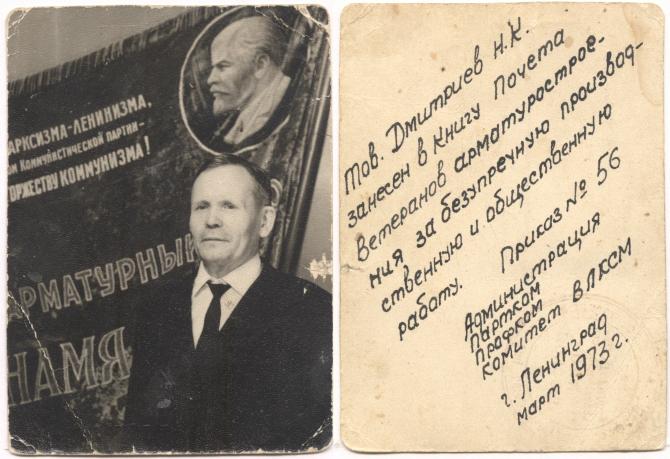 АРКСИЗМА-ЛЕНИНИЗМА,
ом Коммунистической партии -
ТОРЖЕСТВУ КОММУНИЗМА!
АРМАТУРНЫЙ
НАМЯ
Тов. Дмитриев Н.К.
занесен в Книгу Почета
Ветеранов арматурострое-
ния за безупречную производ-
ственную и общественную
работу. Приказ № 56
Администрация
Партком
Профком
комитет ВЛКСМ
г. Ленинград
март 1973 г.